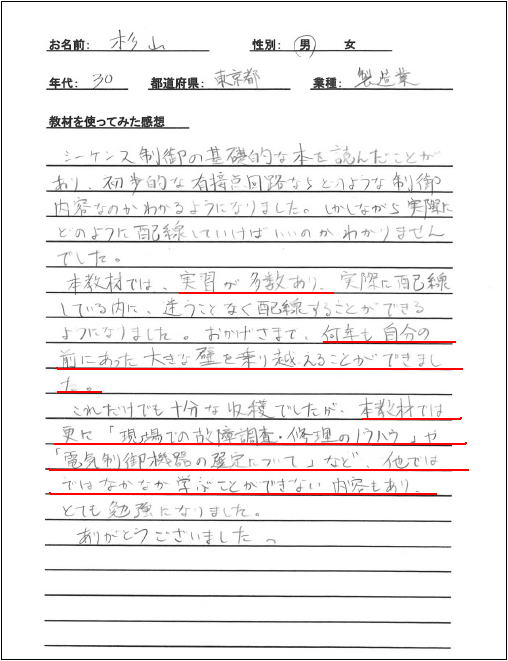 お名前： 杉山 性別： 男 女
年代： 30 都道府県： 東京都 業種： 製造業
教材を使ってみた感想
シーケンス制御の基礎的な本を読んだことが
あり、初歩的な有接点回路ならどのような制御
内容なのかわかるようになりました。しかしながら実際に
どのように配線していけばいいのかわかりません
でした。
本教材では、実習が多数あり、実際に配線
している内に、迷うことなく配線することができる
ようになりました。おかげさまで、何年も自分の
前にあった大きな壁を乗り越えることができまし
た。
これだけでも十分な収穫でしたが、本教材では
更に「現場での故障調査・修理のノウハウ」や
「電気制御機器の選定について」など、他では
ではなかなか学ぶことができない内容もあり、
とても勉強になりました。
ありがとうございました。